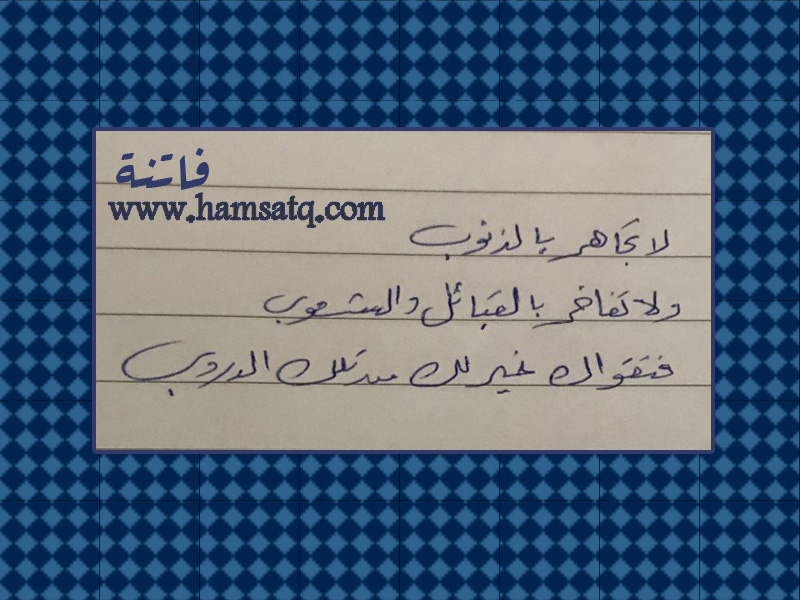 فاتنة
www.hamsatq.com
لا تجاهر بالذنوب
ولا تفاخر بالقبائل والشعوب
فتقواك خير لك من تلك الدروب